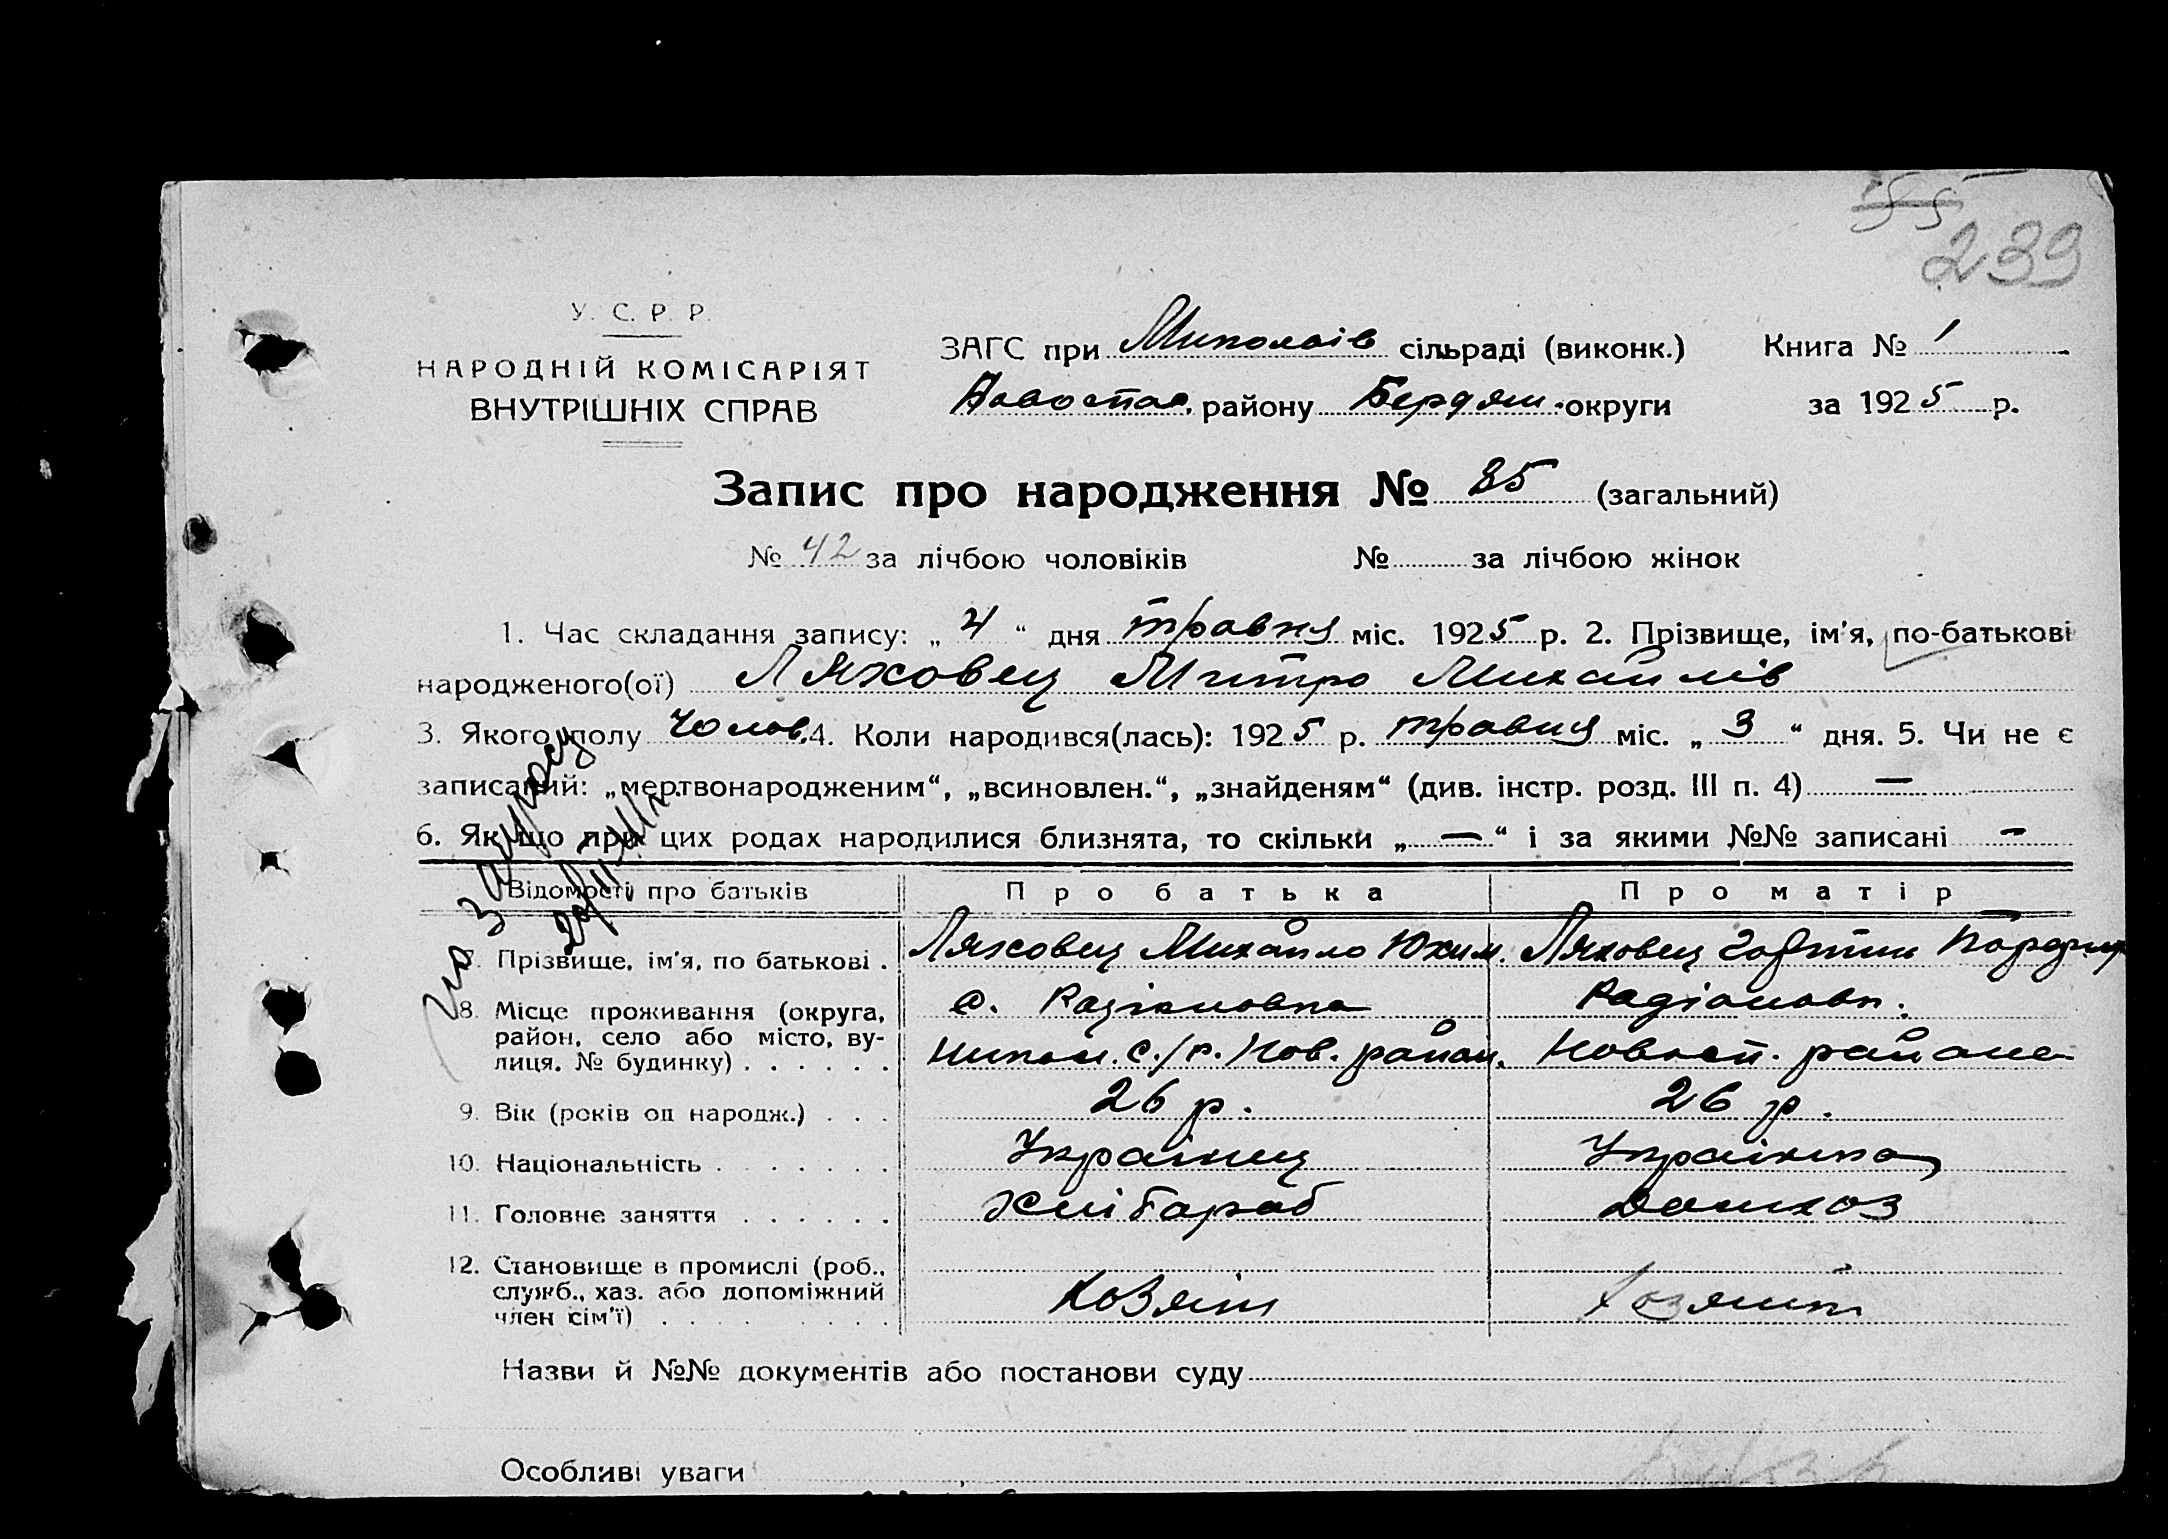 55
239
У. С. Р. Р.
НАРОДНІЙ КОМІСАРІЯТ
ВНУТРІШНІХ СПРАВ
ЗАГС при Миколаів сільраді (виконк.) Книга № 1
Новоспас. району Бердян. округи за 1925 р.
Запис про народження № 85 (загальний)
№ 42 за лічбою чоловіків № за лічбою жінок
1. Час складання запису: „ 4 “ дня травня міс. 1925 р. 2. Прізвище, ім'я, по-батькові
народженого(ої) Ляховец Митро Михайлів
3. Якого полу Чолов. 4. Коли народився(лась): 1925 р. травня міс. „ 3 “ дня. 5. Чи не є
записаний: „мертвонародженим“, „всиновлен.“, „знайденям“ (див. інстр. розд. III п. 4) —
6. Якщо при цих родах народилися близнята, то скільки „ — “ і за якими №№ записані —
Відомості про батьків Про батька Про матір
7. Прізвище, ім'я, по батькові . Ляховец Михайло Юхим. Ляховец
8. Місце проживання (округа, с. Радіоновка Радіоновк.
район, село або місто, вулиця, № будинку) . . . . . . Микол. с./р. Нов. район. Новосп. района
9. Вік (років од народж.) . . . 26 р. 26 р.
10. Національність . . . . . . . Украінец Украінка
11. Головне заняття . . . . . . Хлібараб Домхоз
12. Становище в промислі (роб.,
служб., хаз. або допоміжний
член сім'ї) . . . . . . . . Хозяін Хозяйк
Назви й №№ документів або постанови суду
Особливі уваги